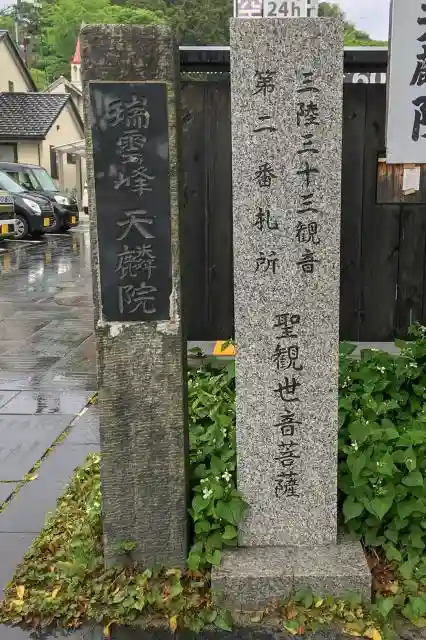 24h
天麟院
三陸三十三観音
第二番札所
聖観世音菩薩
瑞雲峰 天麟院